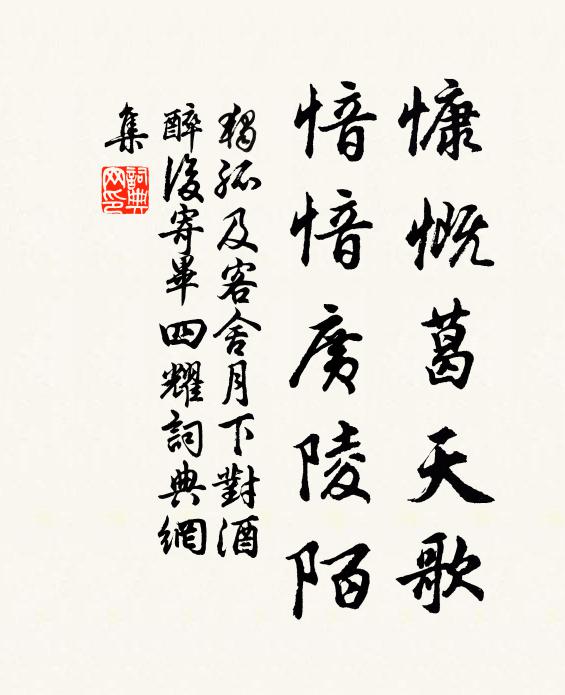 慷慨葛天歌
愔愔廣陵陌
獨孤及客舍月下對酒
醉後寄畢四耀詞典網
集
詞典網印